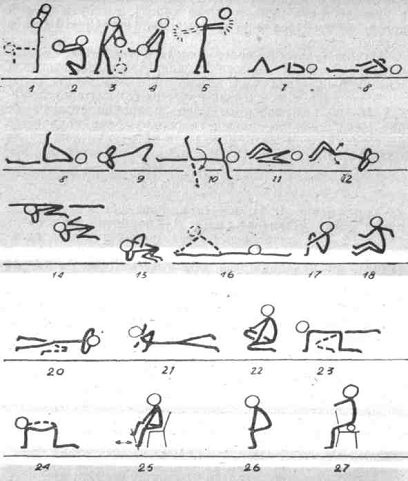 1 2 3 4 5 7 8
8 9 10 11 12
14 15 16 17 18
20 21 22 23
24 25 26 27